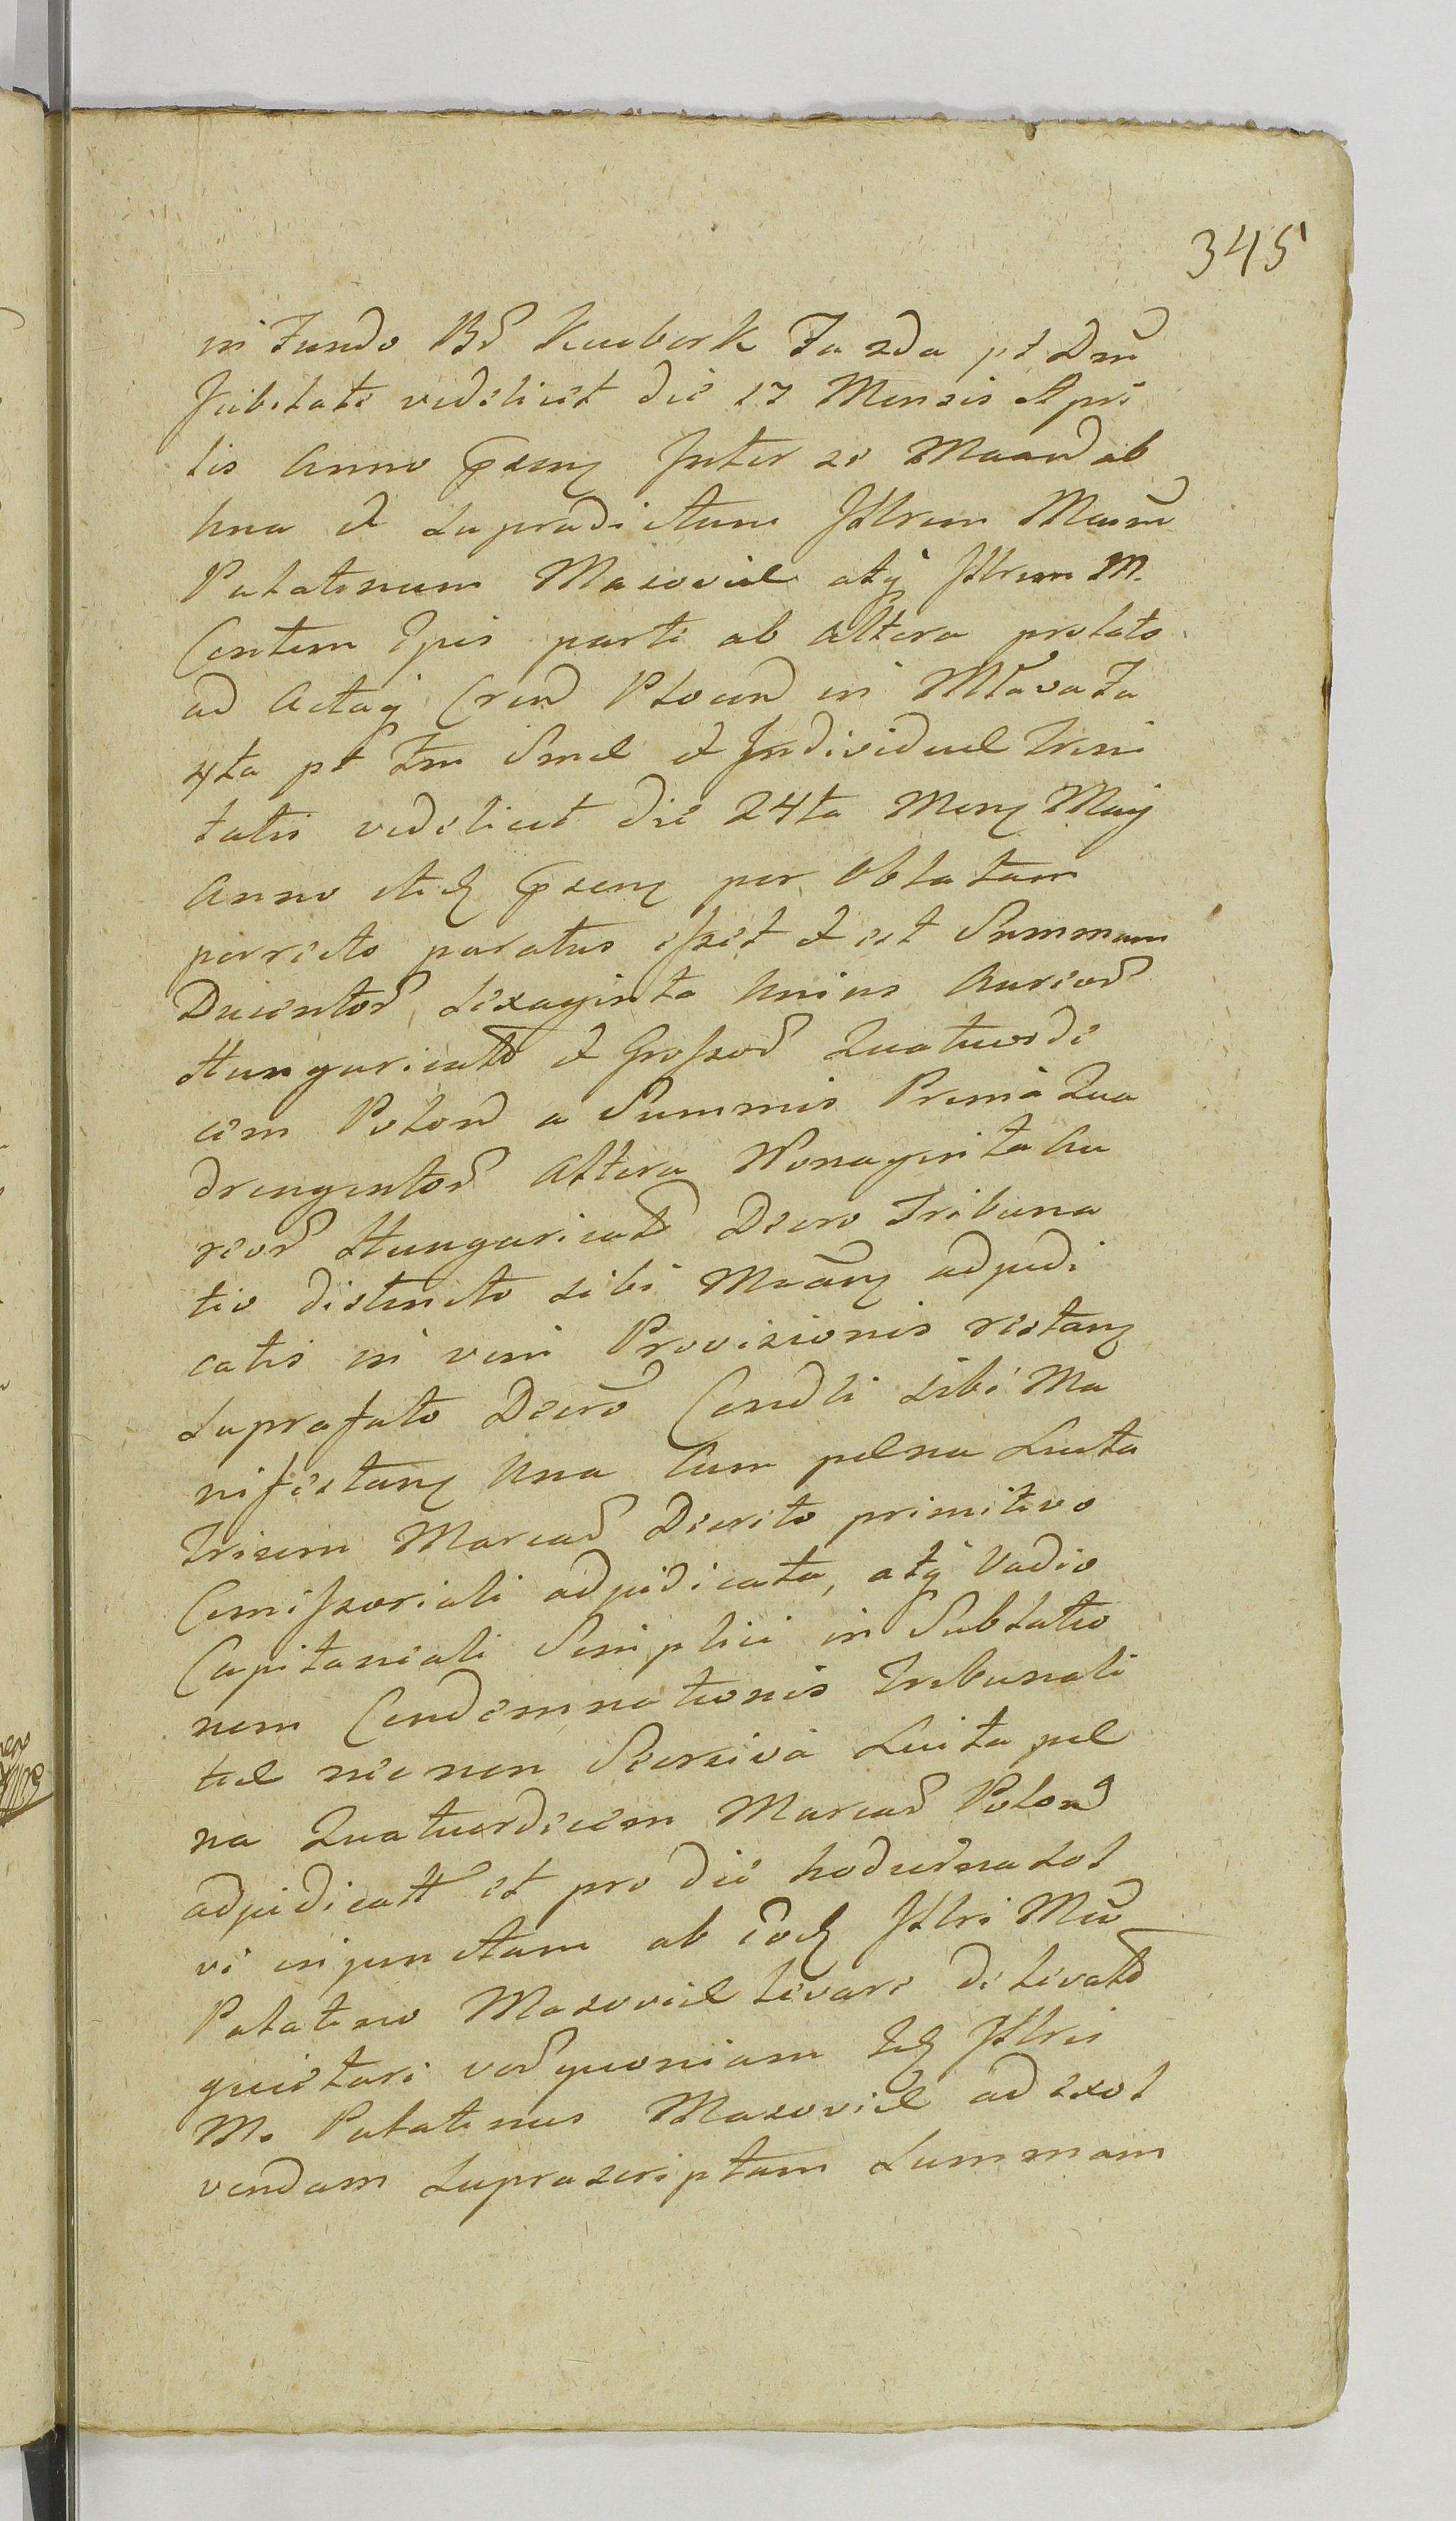 345
in Fundo Bõ Kuchork Fa 2da pt Dnm
Jubitate videlicet die 17 Mensis Apri
lis Anno prsen Inter se Maand ab
una et supradictum Illrem Maũm
Palatinum Masoviae atq Illrem M.
Contem Ipis parti ab altera prolato
ad Actaq Cren Plocen in Mława Fa
4ta pt Fm Smae et Individuae Trini
tatis videlicet die 24ta Mens Maij
Anno itid prsen per Oblatam
porrecto paratus esset et est Summam
Ducentor sexaginta unius Aureor
Hungaricat et Grossor Quatuorde
cim Polon a Summis Prima Qua
dringentor altera Nonaginta Au
reor Hungaricat Decro Tribuna
tio distincto sibi Maãn adjudi
catis in vim Provisionis restan
suprafato Decro Condli sibi Ma
nifestan una cum paena Luita
Trium Marcar Decreto primitivo
Comissoriali adjudicata, atq Vadio
Capitaneali Simplici in Sublatio
nem Condemnationis Tribunali
tae nec non Recersiva Luita pae
na Quatuordecim Marcar Polon
adjudicatt et pro die hodierna sol
vi injunctam ab eod Illri Mco
Palatino Masoviae levare de levatt
quietare vor quoniam Id Illris
M. Palatinus Masoviae ad exol
vendam suprascriptam Summam